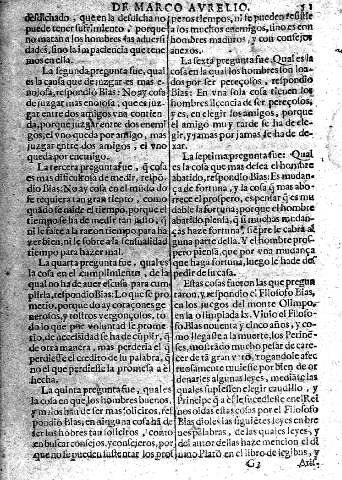 DE MARCO AVRELIO. 51
desdichado, que en la desdicha no
puede tener sufrimiento, porque
no matan a los hombres las adversi
dades, sino la impaciencia que tene
mos en ella.
La segunda pregunta fue, qual es
la cosa que de juzgar es mas e-
nojosa, respondio Bias: No ay cosa
de juzgar mas enojosa, que es juz-
gar entre dos amigos vna contien
da, porque juzgar entre dos enemi
gos, el vno queda por amigo, mas
juzgar entre dos amigos, el vno
queda por enemigo.
La tercera pregunta fue, q̃ cosa
es mas dificultosa de medir, respō
dio Bias: No ay cosa en el mūdo do
se requiera tan gran tiento, como
quādo se mide el tiempo, porque el
tiempo se ha de medir tan justo, q̃
ni le falte a la razon tiempo para ha
zer bien, ni le sobre a la sensualidad
tiempo para hazer mal.
La quarta pregunta fue, qual es
la cosa en el cumplimiento, de la
qual no ha de auer escusa para cum
plirla, respōdio Bias: Lo que se pro
metio, porque do ay coraçones ge
nerosos, y rostros vergonçosos, to
do lo que por voluntad se prome
tio, de necessidad se ha de cūplir, q̃
de otra manera, mas perderia el q̃
perdiesse el credito de su palabra, q̃
no el que perdiesse la promessa a el
hecha.
La quinta pregunta fue, qual es
la cosa en que los hombres buenos,
y malos han de ser mas solicitos, respō
dio Bias, en ninguna cosa hā de
ser los hōbres tan solicitos, como
en buscar consejos, y consejeros, por
que no se pueden sustentar los pros
peros tiempos, ni se pueden resistir
a los muchos enemigos, sino es con
hombres maduros, y con consejos
anexos.
La sexta pregunta fue, Qual es la
cosa en la qual los hombres son loa-
dos por ser pereçosos, respondio
Bias: En vna sola cosa tienen los
hombres licencia de ser pereçosos,
y es, en elegir los amigos, porque
el amigo muy tarde se ha de ele-
gir, y jamas por jamas se ha de de-
xar.
La septima pregunta fue: Qual
es la cosa que mas desea el hombre
abatido, respōdio Bias: Es mudan
ça de fortuna, y la cosa q̃ mas abo-
rrece el prospero, es pensar q̃ es mu
dable la fortuna; porque el hombre
abatido piensa, q̃ si muchas mudan
ças haze fortuna, siēpre le cabra al
guna parte della. Y el hombre pros-
pero piensa, que por vna mudança
que haga fortuna, luego le hade des
pedir de su casa.
Estas cosas fueron las que pregun
taron, y respondio el Filosofo Bias,
en los juegos del monte Olimpo,
en la olimpiada lx. Viuio el Filoso-
fo Bias nouenta y cinco años, y co-
mo llegasse a la muerte, los Perine-
ses, mostrādo mucho pesar de care-
cer de tā gran vatō, rogandole afec
tuosamente muiesse por bien de or
denarles algunas leyes, mediāte las
quales supiessen elegir caudillo, y
Principe q̃ a el le sucediesse en el Rei
no: oidas estas cosas por el Filosofo
Bias dioles las siguiētes leyes en bre
ues palabras, de las quales leyes, y
del autor dellas haze mencion el di
uino Platō en el libro de legibus, y
G3 Aris-